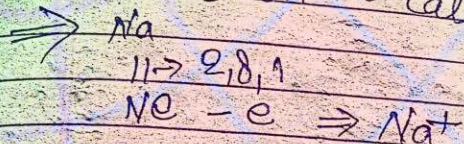 Cal
⇒ Na
11→ 2,8,1
Ne - e ⇒ Na⁺